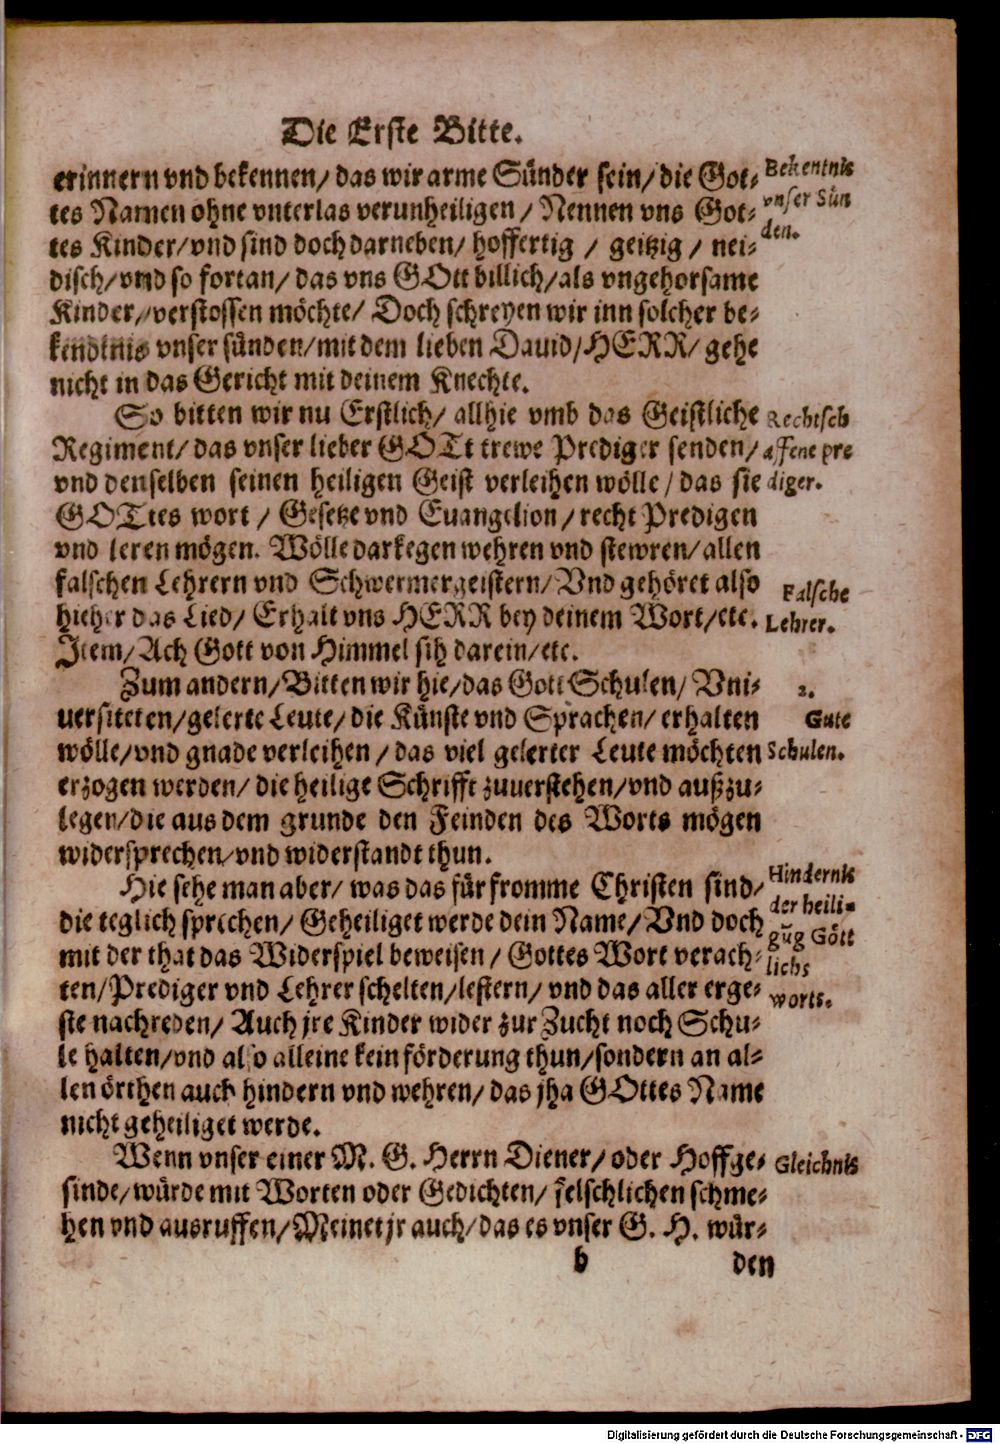 Die Erste Bitte.
erinnern vnd bekennen/ das wir arme Sünder sein/ die Got-
tes Namen ohne vnterlas verunheiligen/ Nennen vns Got-
tes Kinder/ vnd sind doch darneben/ hoffertig / geitzig / nei-
disch/ vnd so fortan/ das vns GOtt billich/ als vngehorsame
Kinder/ verstossen möchte/ Doch schreyen wir inn solcher be-
kendtnis vnser sünden/ mit dem lieben Dauid/ HERR/ gehe
nicht in das Gericht mit deinem Knechte.
Bekentnis
vnser Sün
den.
So bitten wir nu Erstlich/ allhie vmb das Geistliche
Regiment/ das vnser lieber GOTt trewe Prediger senden/
vnd denselben seinen heiligen Geist verleihen wölle/ das sie
GOTtes wort / Gesetze vnd Euangelion/ recht Predigen
vnd leren mögen. Wölle darkegen wehren vnd stewren/ allen
falschen Lehrern vnd Schwermergeistern/ Vnd gehöret also
hieher das Lied/ Erhalt vns HERR bey deinem Wort/ etc.
Item/ Ach Gott von Himmel sih darein/ etc.
Rechtsch
affene pre
diger.
Falsche
Lehrer.
Zum andern/ Bitten wir hie/ das Gott Schulen/ Vni-
uersiteten/ gelerte Leute/ die Künste vnd Sprachen/ erhalten
wölle/ vnd gnade verleihen / das viel gelerter Leute möchten
erzogen werden/ die heilige Schrifft zuuerstehen/ vnd außzu-
legen/ die aus dem grunde den Feinden des Worts mögen
widersprechen/ vnd widerstandt thun.
2.
Gute
Schulen.
Hie sehe man aber/ was das für fromme Christen sind/
die teglich sprechen/ Geheiliget werde dein Name/ Vnd doch
mit der that das Widerspiel beweisen/ Gottes Wort verach-
ten/ Prediger vnd Lehrer schelten/ lestern/ vnd das aller erge-
ste nachreden/ Auch jre Kinder wider zur Zucht noch Schu-
le halten/ vnd also alleine kein förderung thun/ sondern an al-
len örthen auch hindern vnd wehren/ das jha GOttes Name
nicht geheiliget werde.
Hindernis
der heili-
gūg Gött
lichs
worts.
Wenn vnser einer M. G. Herrn Diener/ oder Hoffge-
sinde/ würde mit Worten oder Gedichten/ felschlichen schme-
hen vnd ausruffen/ Meinet jr auch/ das es vnser G. H. wür-
Gleichnis
b
den
Digitalisierung gefördert durch die Deutsche Forschungsgemeinschaft - DFG